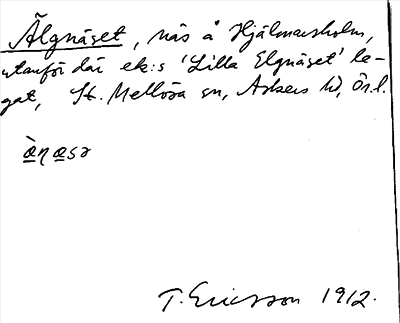 Älgnäset, näs å Hjälmarsholm,
utanför där ek:s 'Lilla Elgnäset' le-
gat, St. Mellösa sn, Askers hd, Ör.l.
T. Ericsson 1912.